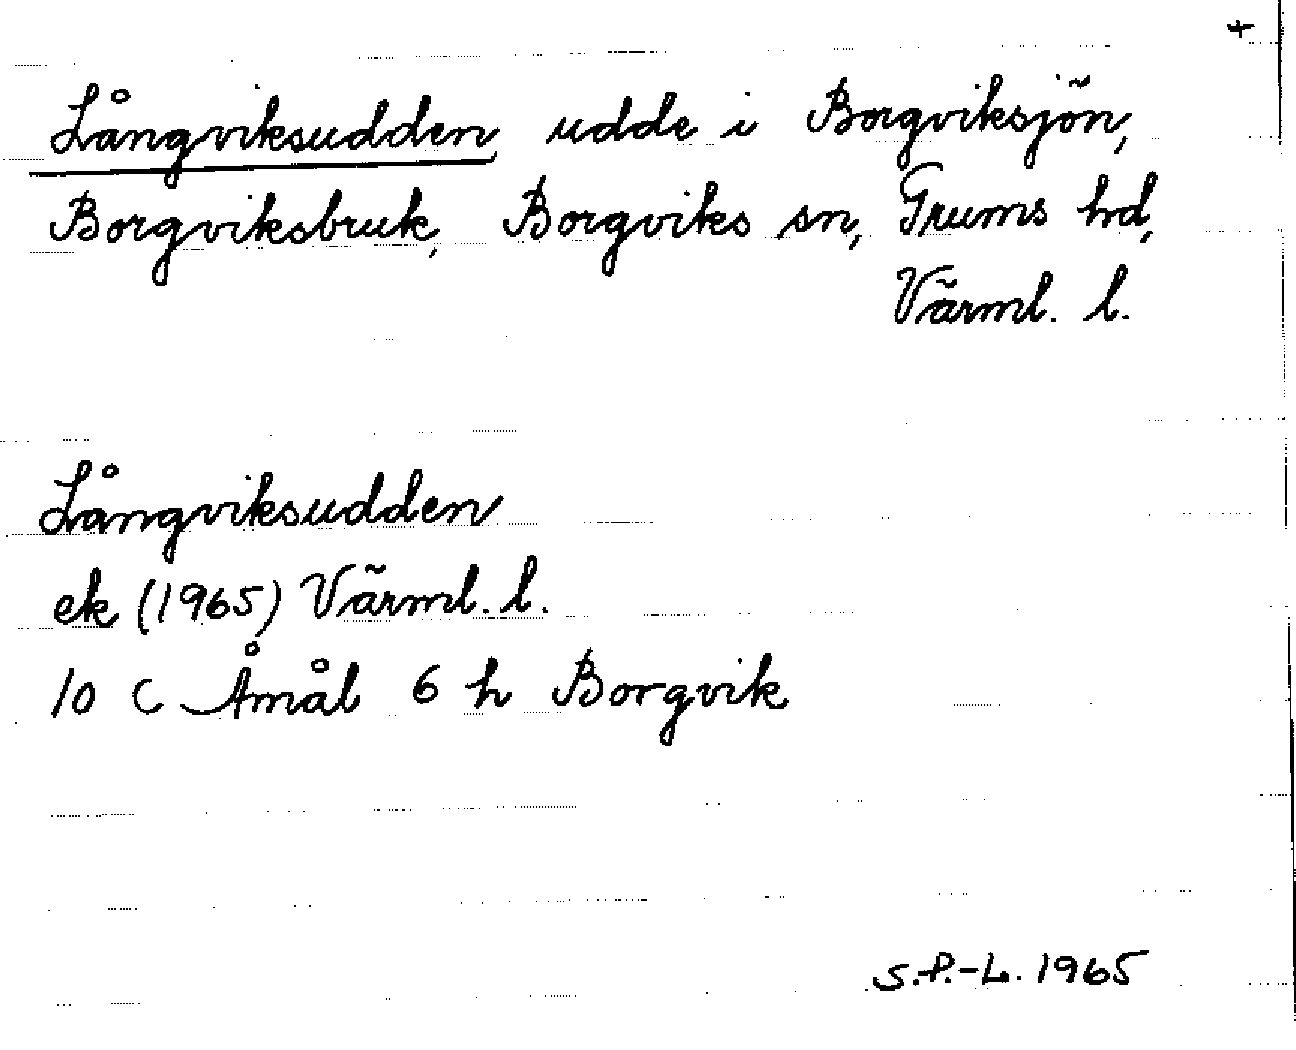 +
Långviksudden udde i Borgviksjön,
Borgviksbruk, Borgviks sn, Grums hd,
Värml. l.
Långviksudden
ek (1965) Värml. l.
10 C Åmål 6 h Borgvik
S.P.-L. 1965